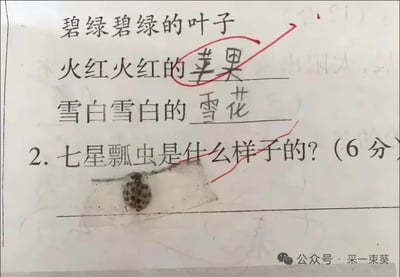 碧绿碧绿的叶子
火红火红的苹果
雪白雪白的雪花
2. 七星瓢虫是什么样子的？(6 分)
公众号 · 采一束葵